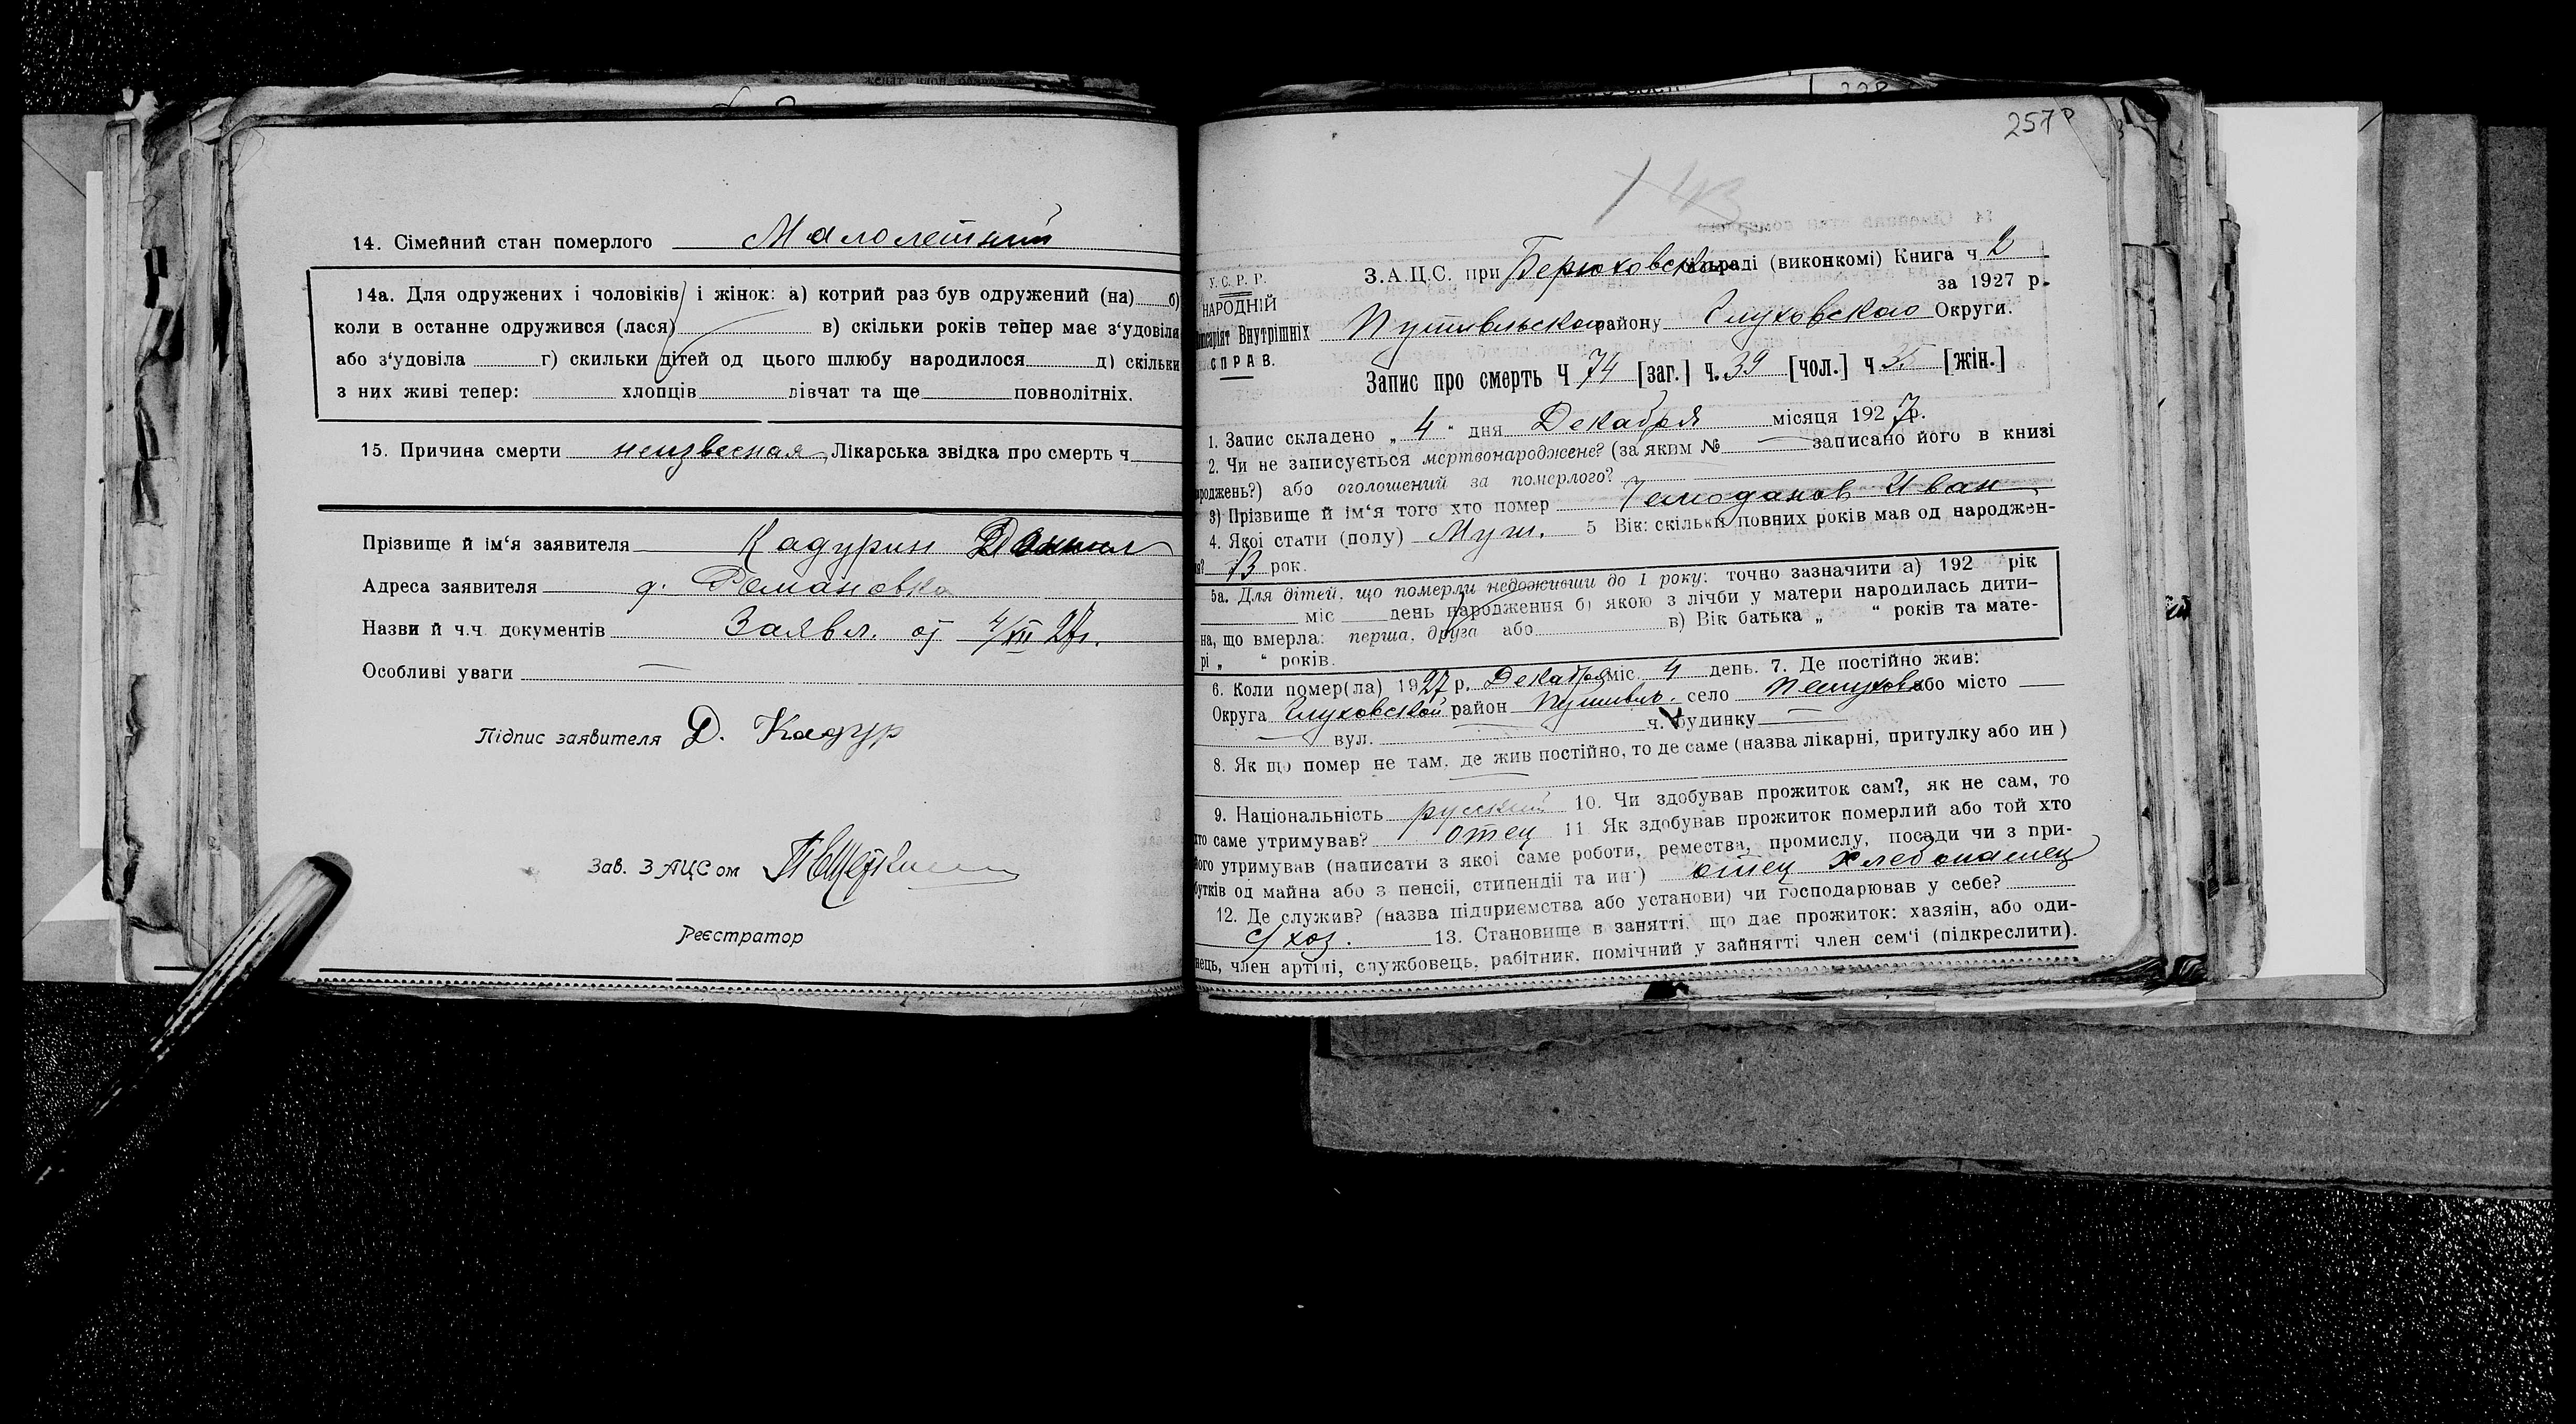 14. Сімейний стан померлого Малолетний
14а. Для одружених і чоловіків і жінок: а) котрий раз був одружений (на) б)
коли в останнє одружився (лася) в) скільки років тепер має з'удовіла
або з'удовіла г) скильки дітей од цього шлюбу народилося д) скільки
з них живі тепер: хлопців дівчат та ще повнолітніх.
15. Причина смерти неизвесная Лікарська звідка про смерть ч
Прізвище й ім'я заявителя Кадурин Даниил
Адреса заявителя д. Романовка
Назви й ч.ч. документів Заявл. от 4/XII 27г.
Особливі уваги —
Підпис заявителя Д. Кадур
Зав. ЗАЦСом
Реєстратор
257
У.С.Р.Р.
НАРОДНІЙ
Внутрішніх
СПРАВ.
З.А.Ц.С. при Берюховском раді (виконкомі) Книга ч 2
за 1927 р.
Путивльского району Глуховского Округи.
Запис про смерть Ч 74 [заг.] ч. 39 [чол.] ч 35 [жін.]
1. Запис складено „ 4 " дня Декабря місяця 1927 р.
2. Чи не записується мертвонароджене? (за яким № — записано його в книзі
роджень?) або оголошений за померлого?
3) Прізвище й ім'я того хто помер Чемоданов Иван
4. Якої стати (полу) Муж. 5 Вік: скільки повних років мав од народжен-
13 рок.
5а. Для дітей, що померли недоживши до 1 року: точно зазначити а) 192 рік
міс день народження б) якою з лічби у матери народилась дити-
на, що вмерла: перша, друга або в) Вік батька „ " років та мате-
рі „ " років.
6. Коли помер(ла) 1927 р. Декабря міс. 4 день. 7. Де постійно жив:
Округа Глуховской район Путивль. село або місто —
— вул. — ч. будинку —
8. Як що помер не там, де жив постійно, то де саме (назва лікарні, притулку або ин)
9. Національність русский 10. Чи здобував прожиток сам?, як не сам, то
хто саме утримував? отец 11 Як здобував прожиток померлий або той хто
його утримував (написати з якої саме роботи, ремества, промислу, посади чи з при-
бутків од майна або з пенсії, стипендії та ин.) отец хлебопашец
12. Де служив? (назва підприємства або установи) чи господарював у себе?
с/хоз. 13. Становище в занятті, що дає прожиток: хазяін, або оди-
нець, член артілі, службовець, рабітник, помічний у зайнятті член сем'ї (підкреслити).